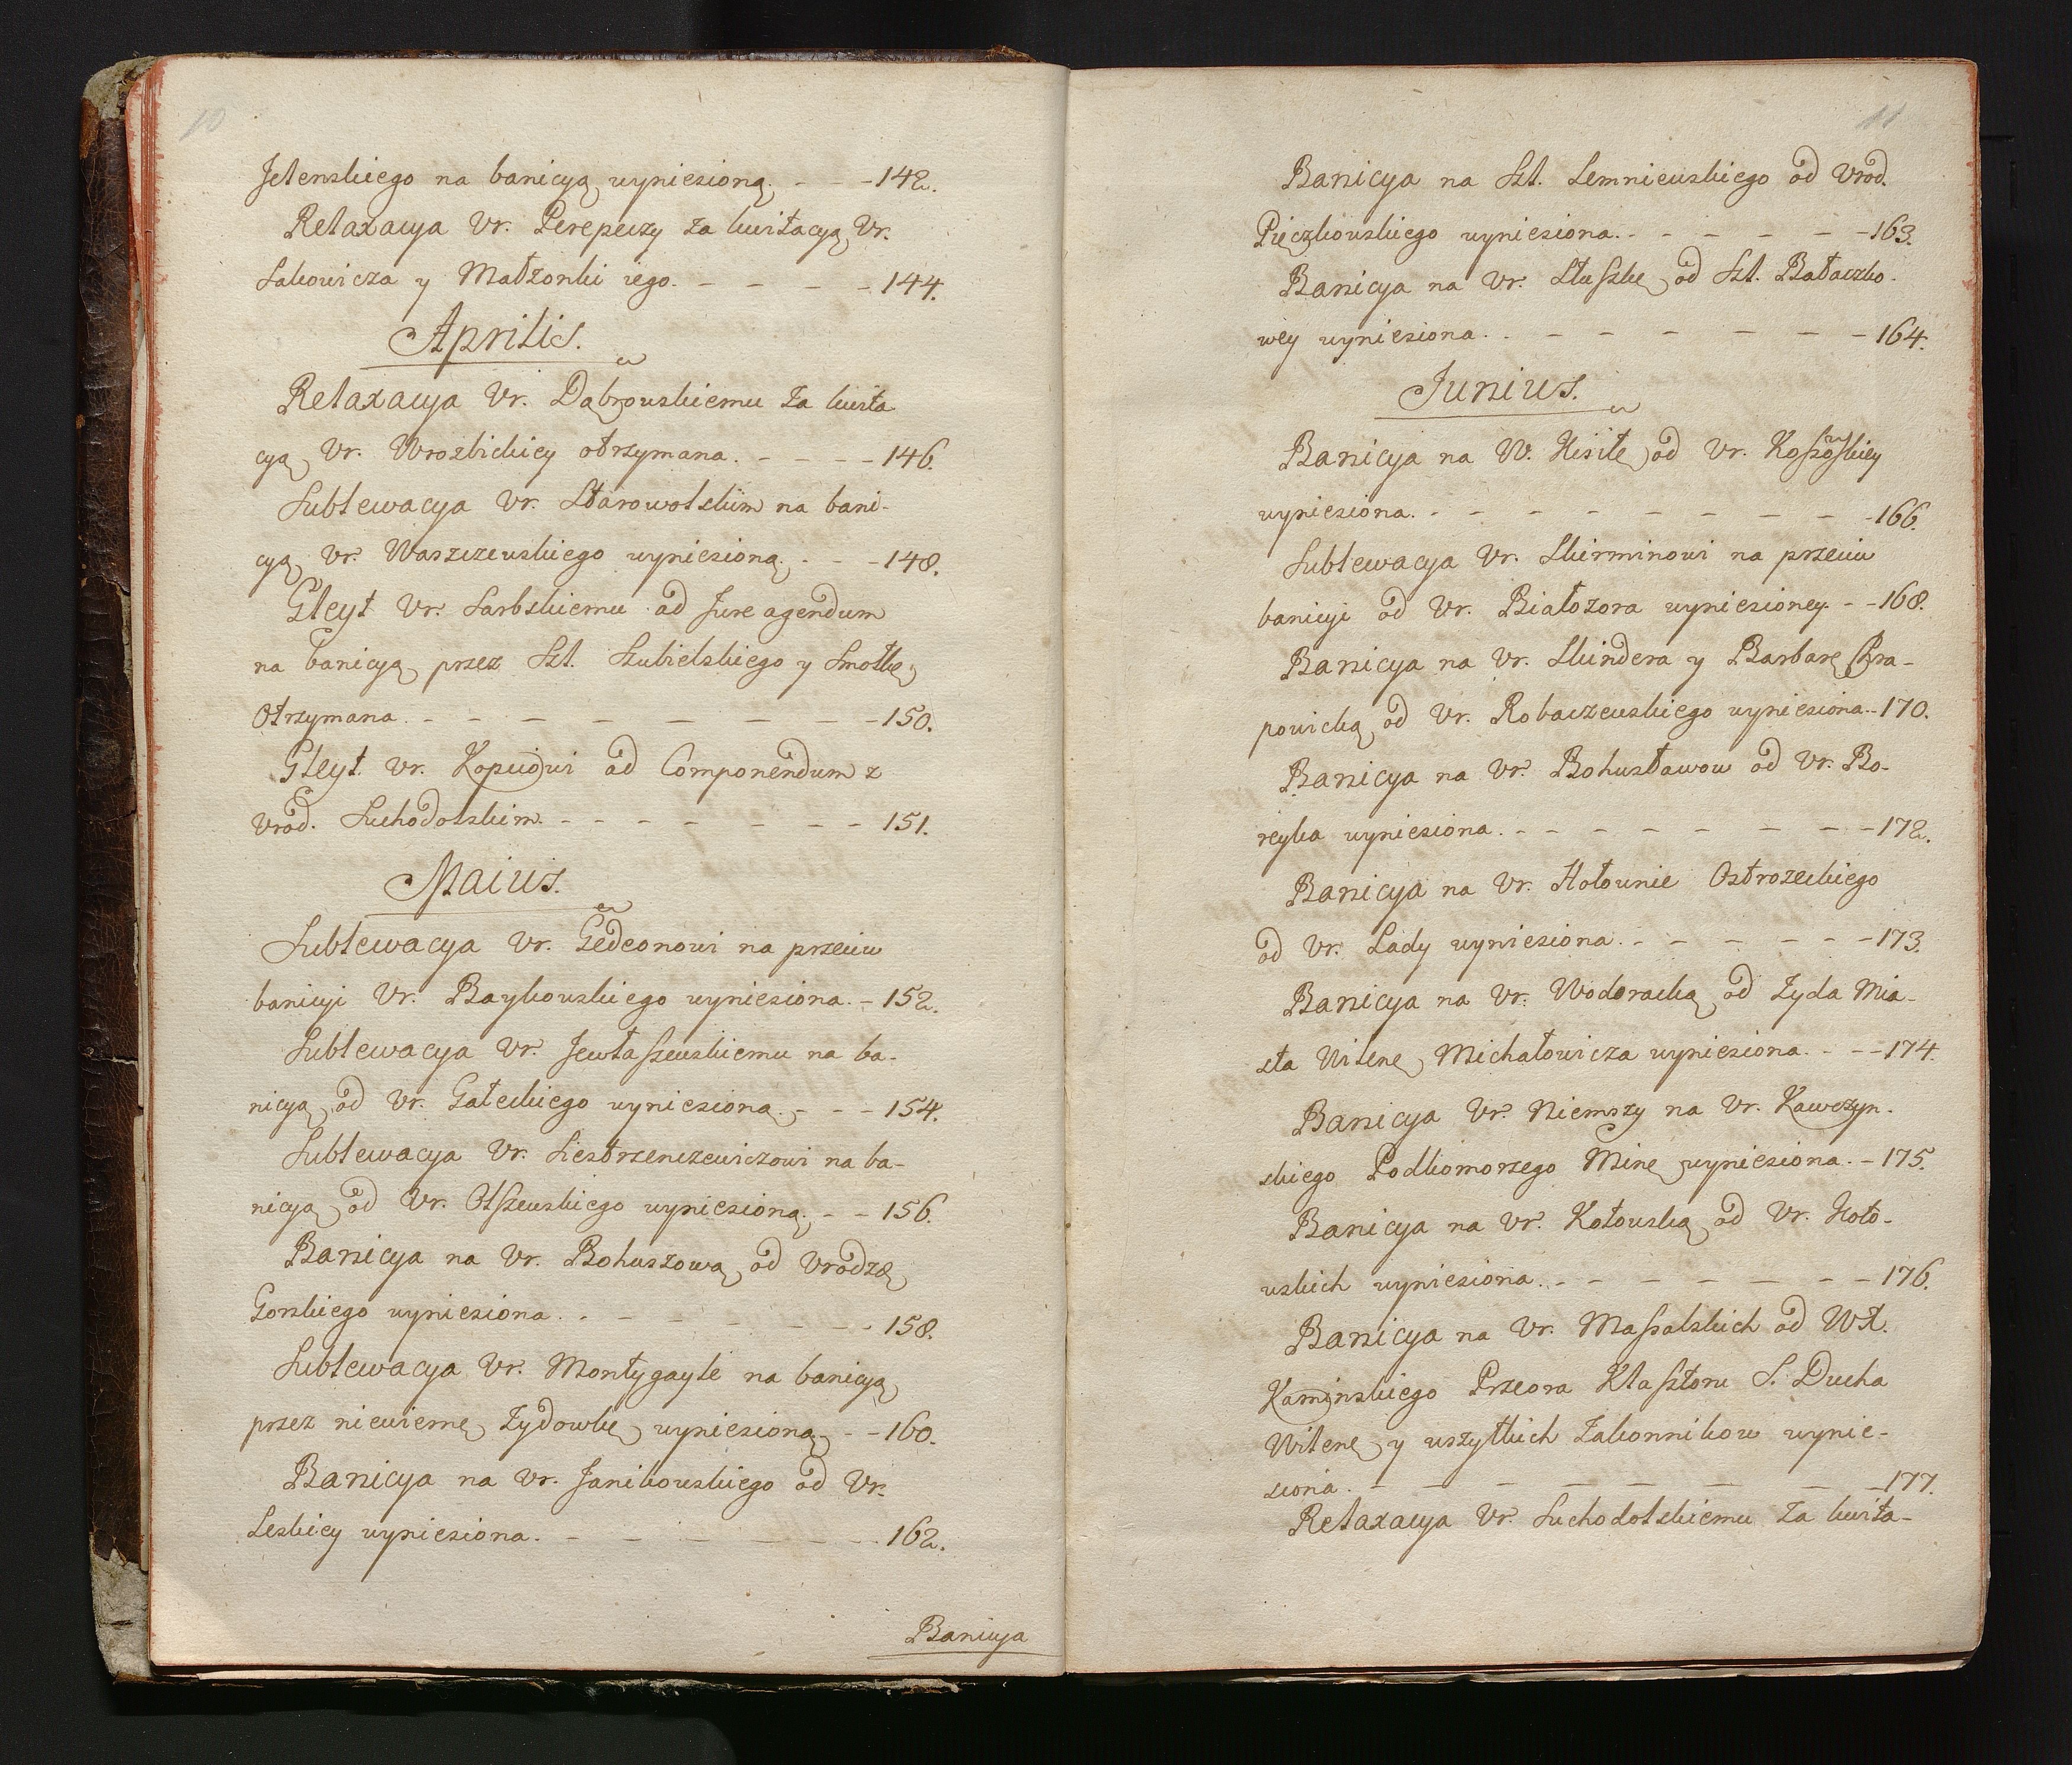 10
Jelenskiego na banicyą wyniesioną. - - - 142.
Relaxacya Vr. Pereperzy za kwitacyą Vr.
Sakowicza y Małzonki iego. - - - - 144.
Aprilis.
Relaxacya Vr. Dąbrowskiemu za kwita
cyą Vr. Wrozbickiey otrzymana. - - - - 146.
Sublewacya Vr. Starowolskim na bani-
cyą Vr. Waszczewskiego wyniesioną. - - - 148.
Gleyt Vr. Sarbskiemu ad Jure agendum
na banicyą przez Szl. Szubielskiego y Smolkę
Otrzymana. - - - - - - - - 150.
Gleyt. Vr. Kopciowi ad Componendum z
Vrod. Suchodolskim. - - - - - - - - 151.
Maius.
Sublewacya Vr. Gedeonowi na przeciw
banicyi Vr. Baykowskiego wyniesiona. - 152.
Sublewacya Vr. Jewłaszewskiemu na ba-
nicyą od Vr. Galeckiego wyniesioną. - - - 154.
Sublewacya Vr. Siestrzencewiczowi na ba-
nicyą od Vr. Olszewskiego wyniesioną. - - 156.
Banicya na Vr. Bohuszową od Vrodzę
Gorskiego wyniesiona. - - - - - - - 158.
Sublewacya Vr. Montygayle na banicyą
przez niewiernę Zydowkę wyniesioną - - 160.
Banicya na Vr. Janikowskiego od Vr.
Leskiey wyniesiona. - - - - - - - 162.
Banicya
11
Banicya na Szl. Semniewskiego od Vrod.
Pieczkowskiego wyniesiona. - - - - - - 163.
Banicya na Vr. Sluszkę od Szl. Bałaczko-
wey wyniesiona. - - - - - - - 164.
Junius.
Banicya na W. Kisiłę od Vr. Koszoskiey
wyniesiona. - - - - - - - - - 166.
Sublewacya Vr. Skirminowi na przeciw
banicyi od Vr. Białozora wyniesioney. - - 168.
Banicya na Vr. Skindera y Barbarę Chra-
powicką od Vr. Robaczewskiego wyniesiona. - 170.
Banicya na Vr. Bohusławow od Vr. Bo-
reyka wyniesiona. - - - - - - - - 172.
Banicya na Vr. Hołownie Ostrozeckiego
od Vr. Lady wyniesiona. - - - - - - 173.
Banicya na Vr. Wodoracką od Zyda Mia-
sta Wilenę Michałowicza wyniesiona. - - - 174.
Banicya Vr. Niemszy na Vr. Kawczyn-
skiego Podkomorzego Minę wyniesiona. - 175.
Banicya na Vr. Kołowską od Vr. Koło-
wskich wyniesiona. - - - - - - - 176.
Banicya na Vr. Massalskich od WX.
Kaminskiego Przeora Klasztoru S. Ducha
Wilenę y wszytkich Zakonnikow wynie-
siona. - - - - - - - - - 177.
Relaxacya Vr. Suchodolskiemu za kwita-